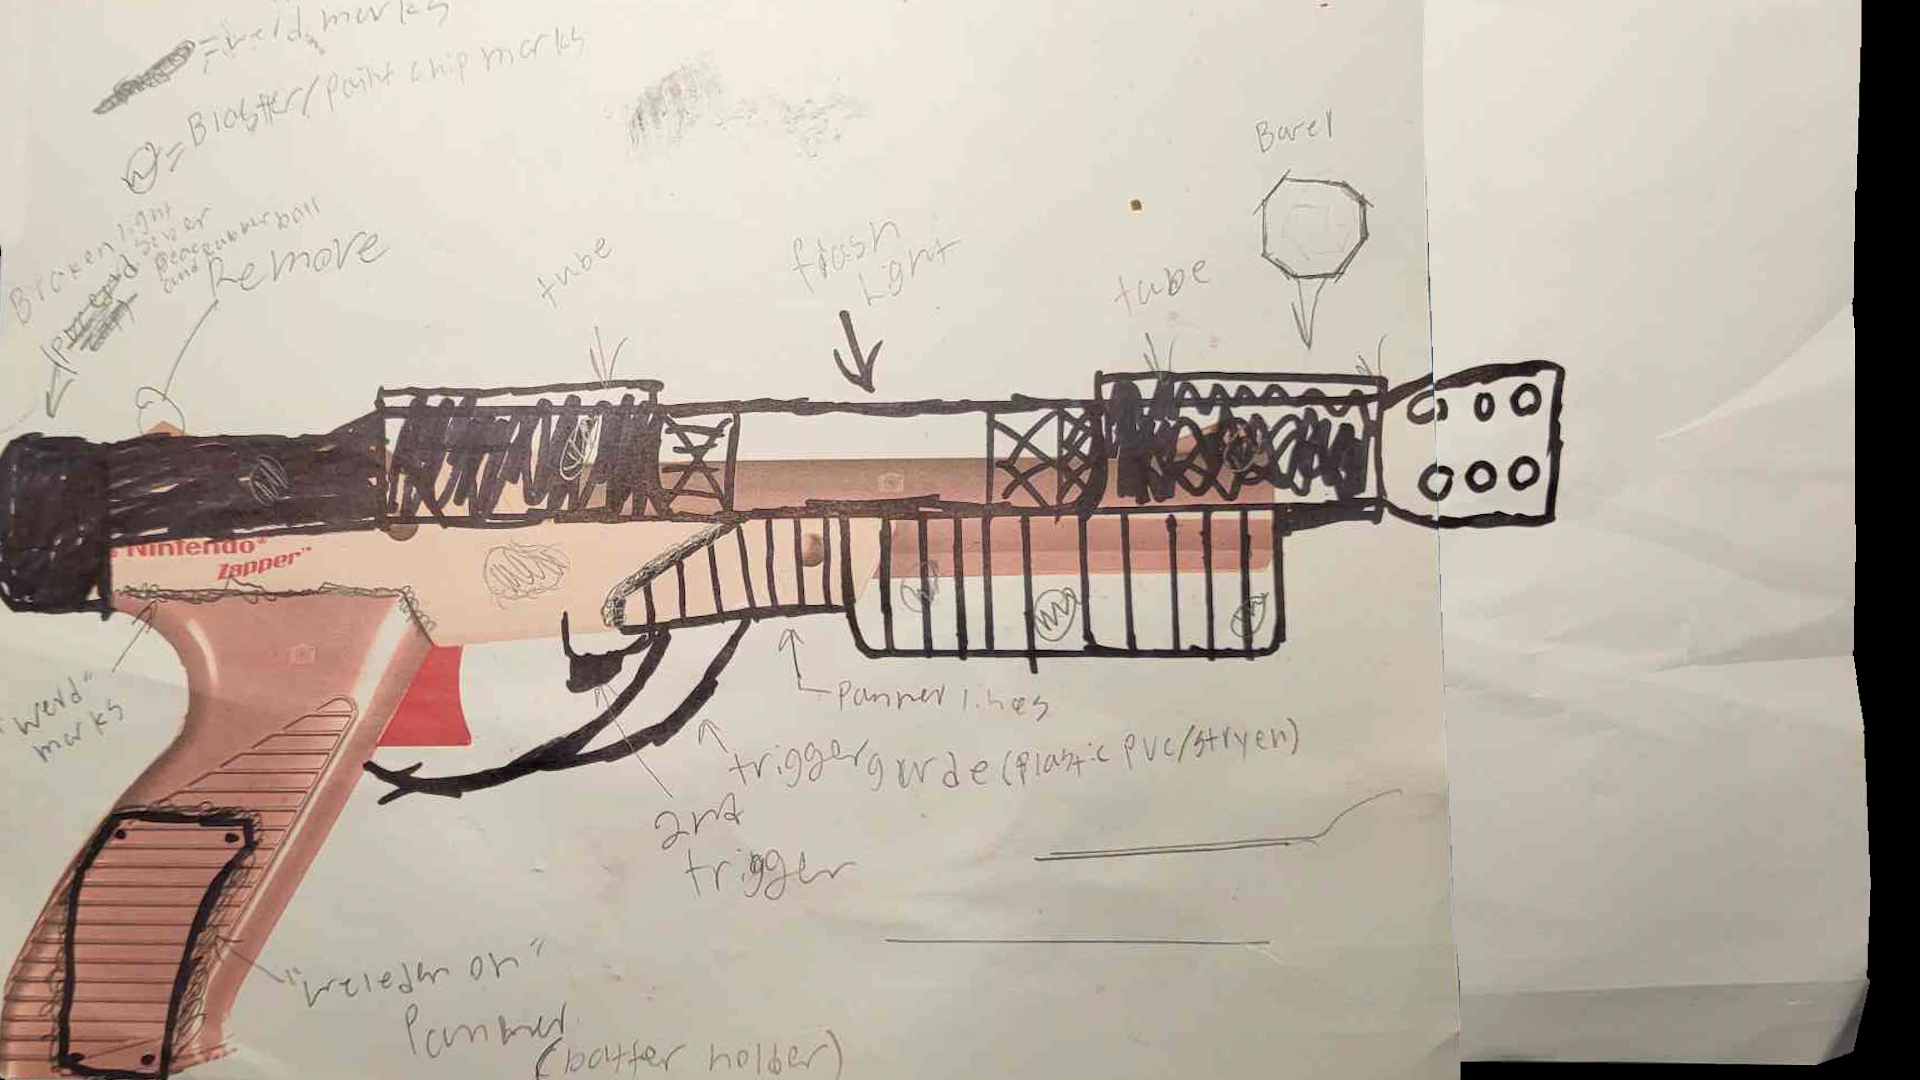 = weld marks
= Blaster/paint chip marks
Broken light
and
Remove
tube
flash
Light
tube
Barel
Nintendo®
Zapper™
"werd"
marks
panner lines
trigger gurde (plastic PVC/stryen)
2nd
trigger
"weleder on"
Panner
(batter holder)